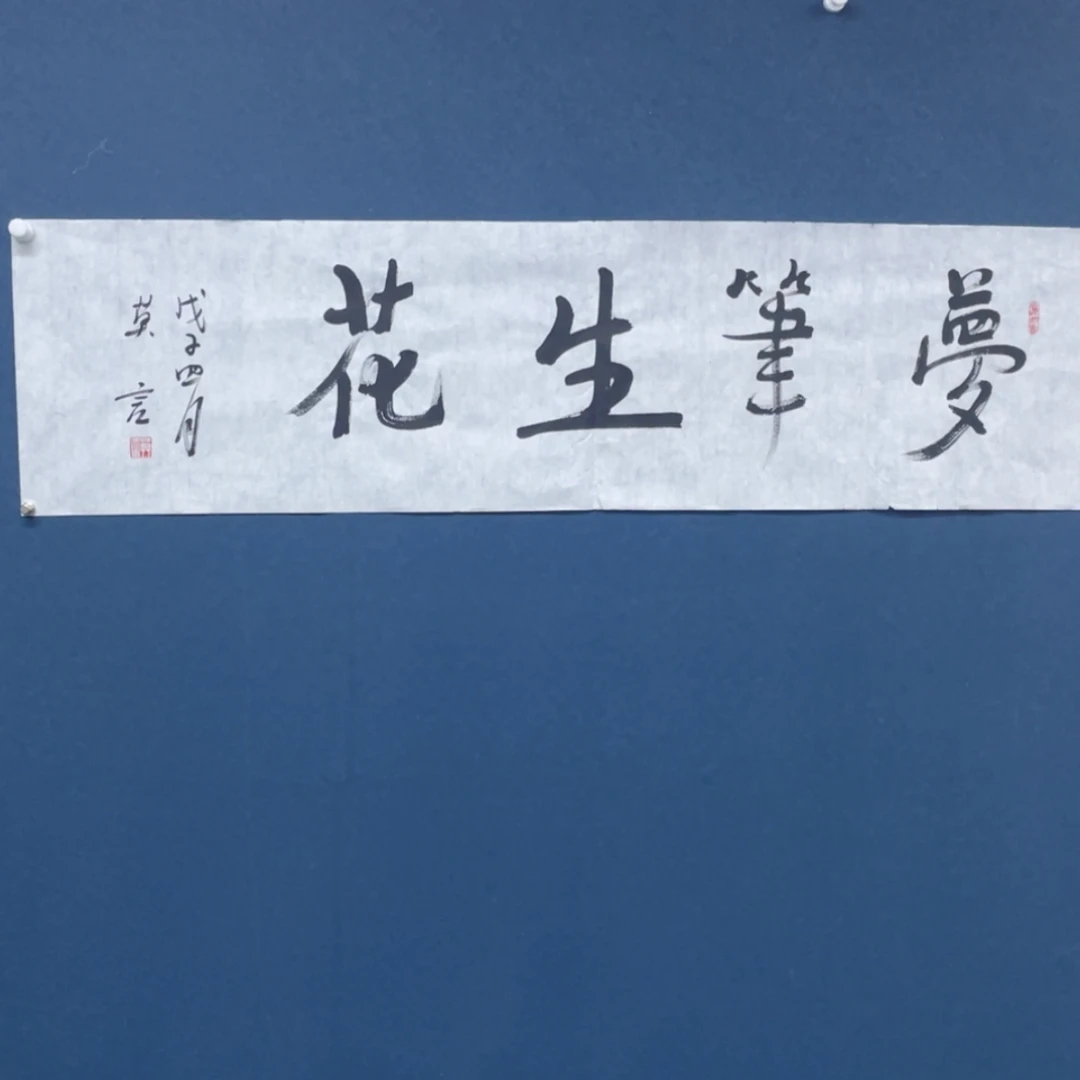 夢筆生花
戊子四月
莫言